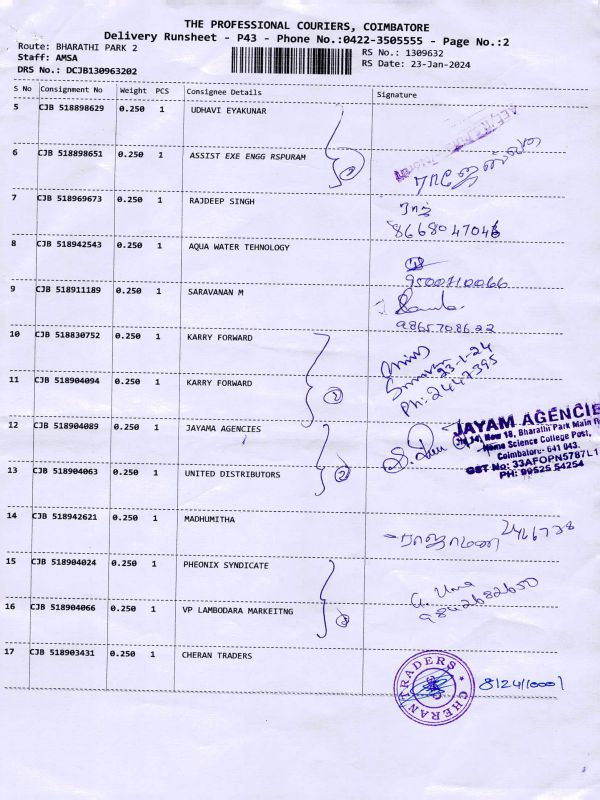 THE PROFESSIONAL COURIERS, COIMBATORE
Delivery Runsheet - P43 - Phone No.:0422-3505555 - Page No.:2
Route: BHARATHI PARK 2
RS No.: 1309632
Staff: AMSA
RS Date: 23-Jan-2024
DRS No.: DCJB130963202
S No Consignment No Weight PCS Consignee Details Signature
5 CJB 518898629 0.250 1 UDHAVI EYAKUNAR
6 CJB 518898651 0.250 1 ASSIST EXE ENGG RSPURAM
7 CJB 518969673 0.250 1 RAJDEEP SINGH
8668047046
8 CJB 518942543 0.250 1 AQUA WATER TEHNOLOGY
9500710066
9 CJB 518911189 0.250 1 SARAVANAN M
9865708622
10 CJB 518830752 0.250 1 KARRY FORWARD
23-1-24
11 CJB 518904094 0.250 1 KARRY FORWARD
2
Ph: 2447395
12 CJB 518904089 0.250 1 JAYAMA AGENCIES
JAYAM AGENCIE
New 18, Bharathi Park Main
Home Science College Post,
Coimbatore- 641 043.
GST No: 33AFOPN5787L1
PH: 99525 54254
13 CJB 518904063 0.250 1 UNITED DISTRIBUTORS
2
14 CJB 518942621 0.250 1 MADHUMITHA
ராஜாமணி
15 CJB 518904024 0.250 1 PHEONIX SYNDICATE
9842682650
16 CJB 518904066 0.250 1 VP LAMBODARA MARKEITNG
17 CJB 518903431 0.250 1 CHERAN TRADERS
CHERAN TRADERS